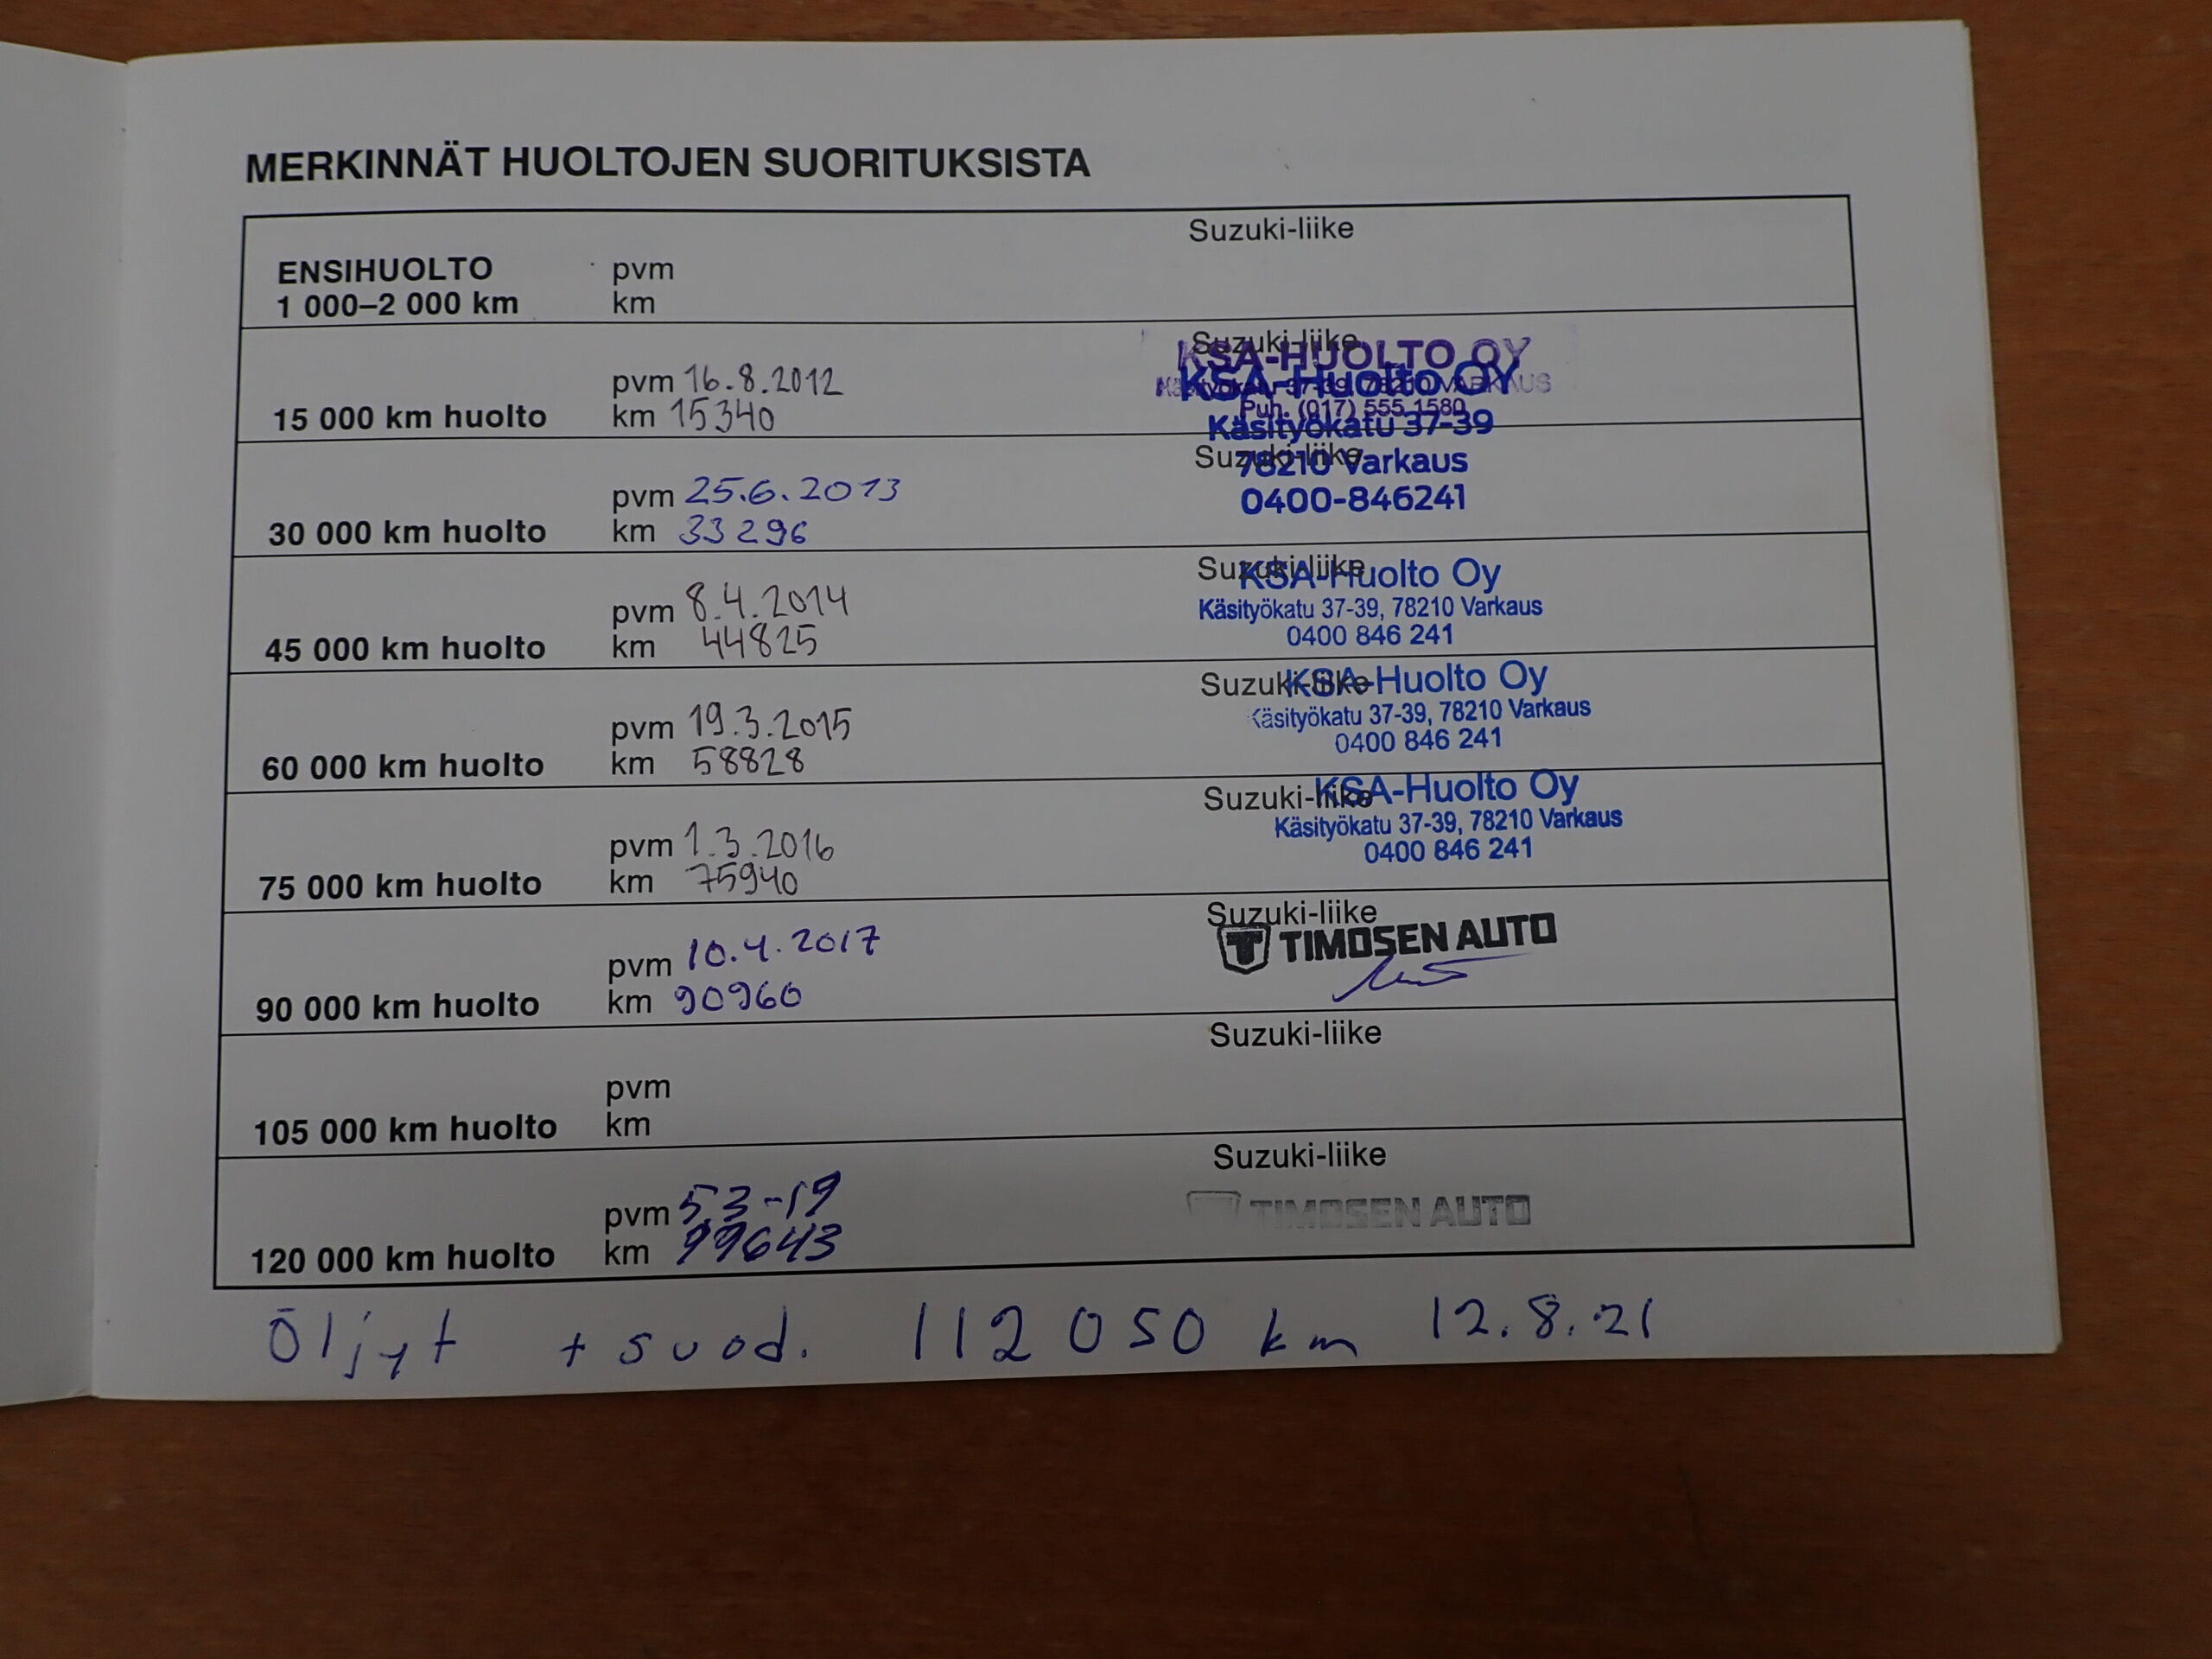 MERKINNÄT HUOLTOJEN SUORITUKSISTA
Suzuki-liike
ENSIHUOLTO pvm
1 000–2 000 km km
Suzuki-liike
KSA-HUOLTO OY
KSA-Huolto OY
Käsityökatu 37-39, 78210 VARKAUS
pvm 16.8.2012
Puh. (017) 555 1580
15 000 km huolto km 15340
Käsityökatu 37-39
Suzuki-liike
78210 Varkaus
pvm 25.6.2013
0400-846241
30 000 km huolto km 33296
Suzuki-liike
KSA-Huolto Oy
pvm 8.4.2014
Käsityökatu 37-39, 78210 Varkaus
0400 846 241
45 000 km huolto km 44825
Suzuki-liike
KSA-Huolto Oy
pvm 19.3.2015
Käsityökatu 37-39, 78210 Varkaus
0400 846 241
60 000 km huolto km 58828
Suzuki-liike
KSA-Huolto Oy
pvm 1.3.2016
Käsityökatu 37-39, 78210 Varkaus
0400 846 241
75 000 km huolto km 75940
Suzuki-liike
pvm 10.4.2017 T TIMOSEN AUTO
90 000 km huolto km 90960
Suzuki-liike
pvm
105 000 km huolto km
Suzuki-liike
pvm 5.3-19 TIMOSEN AUTO
120 000 km huolto km 99643
Öljyt + suod. 112 050 km 12.8.21